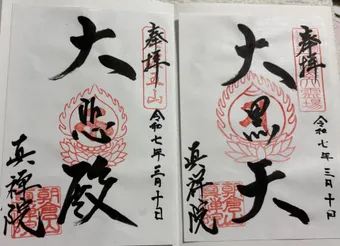 奉拝
大黒天
令和七年三月十日
真禅院
奉拝
大悲殿
令和七年三月十日
真禅院